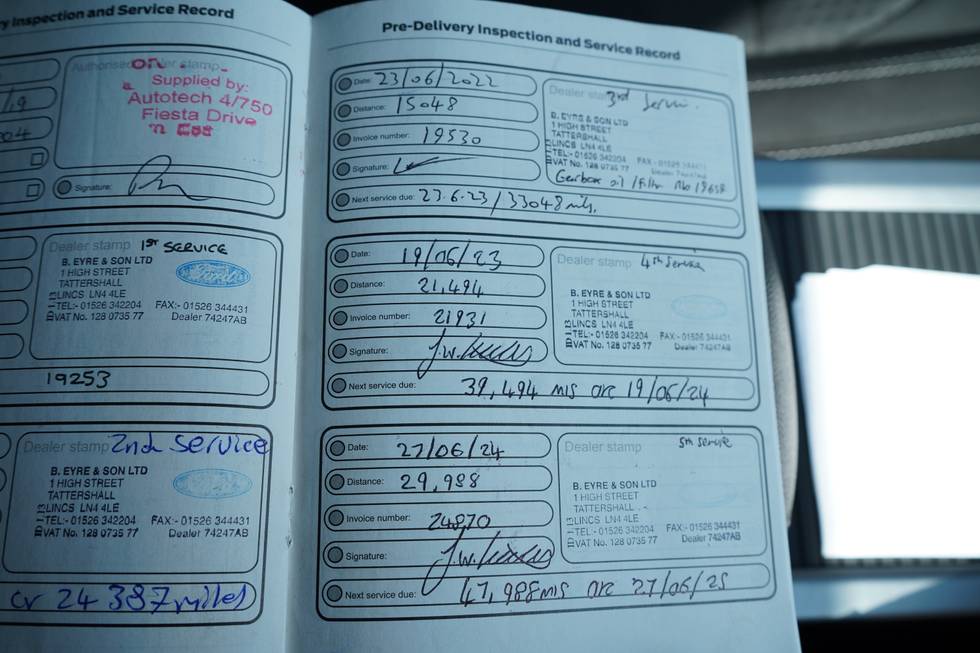 ry Inspection and Service Record
Authorised
Supplied by:
Autotech 4/750
Fiesta Drive
Signature:
Dealer stamp 1ST SERVICE
B. EYRE & SON LTD
1 HIGH STREET
TATTERSHALL
LINCS LN4 4LE
TEL:- 01526 342204 FAX:- 01526 344431
VAT No. 128 0735 77 Dealer 74247AB
Ford
19253
Dealer stamp 2nd Service
B. EYRE & SON LTD
1 HIGH STREET
TATTERSHALL
LINCS LN4 4LE
TEL:- 01526 342204 FAX:- 01526 344431
VAT No. 128 0735 77 Dealer 74247AB
or 24 387 miles
Pre-Delivery Inspection and Service Record
Date: 23/06/2022
Distance: 15048
Invoice number: 19530
Signature:
Next service due: 23.6.23/33048 mls.
Dealer stamp 3rd Service
B. EYRE & SON LTD
1 HIGH STREET
TATTERSHALL
LINCS LN4 4LE
TEL:- 01526 342204 FAX:- 01526 344431
VAT No. 128 0735 77
Gearbox oil / filter
Date: 19/06/23
Distance: 21,494
Invoice number: 21931
Signature:
Next service due: 39,494 mls or 19/06/24
Dealer stamp 4th Service
B. EYRE & SON LTD
1 HIGH STREET
TATTERSHALL
LINCS LN4 4LE
TEL:- 01526 342204 FAX:- 01526 344431
VAT No. 128 0735 77 Dealer 74247AB
Date: 27/06/24
Distance: 29,988
Invoice number: 24870
Signature:
Next service due: 47,988 mls or 27/06/25
Dealer stamp 5th service
B. EYRE & SON LTD
1 HIGH STREET
TATTERSHALL
LINCS LN4 4LE
TEL:- 01526 342204 FAX:- 01526 344431
VAT No. 128 0735 77 Dealer 74247AB